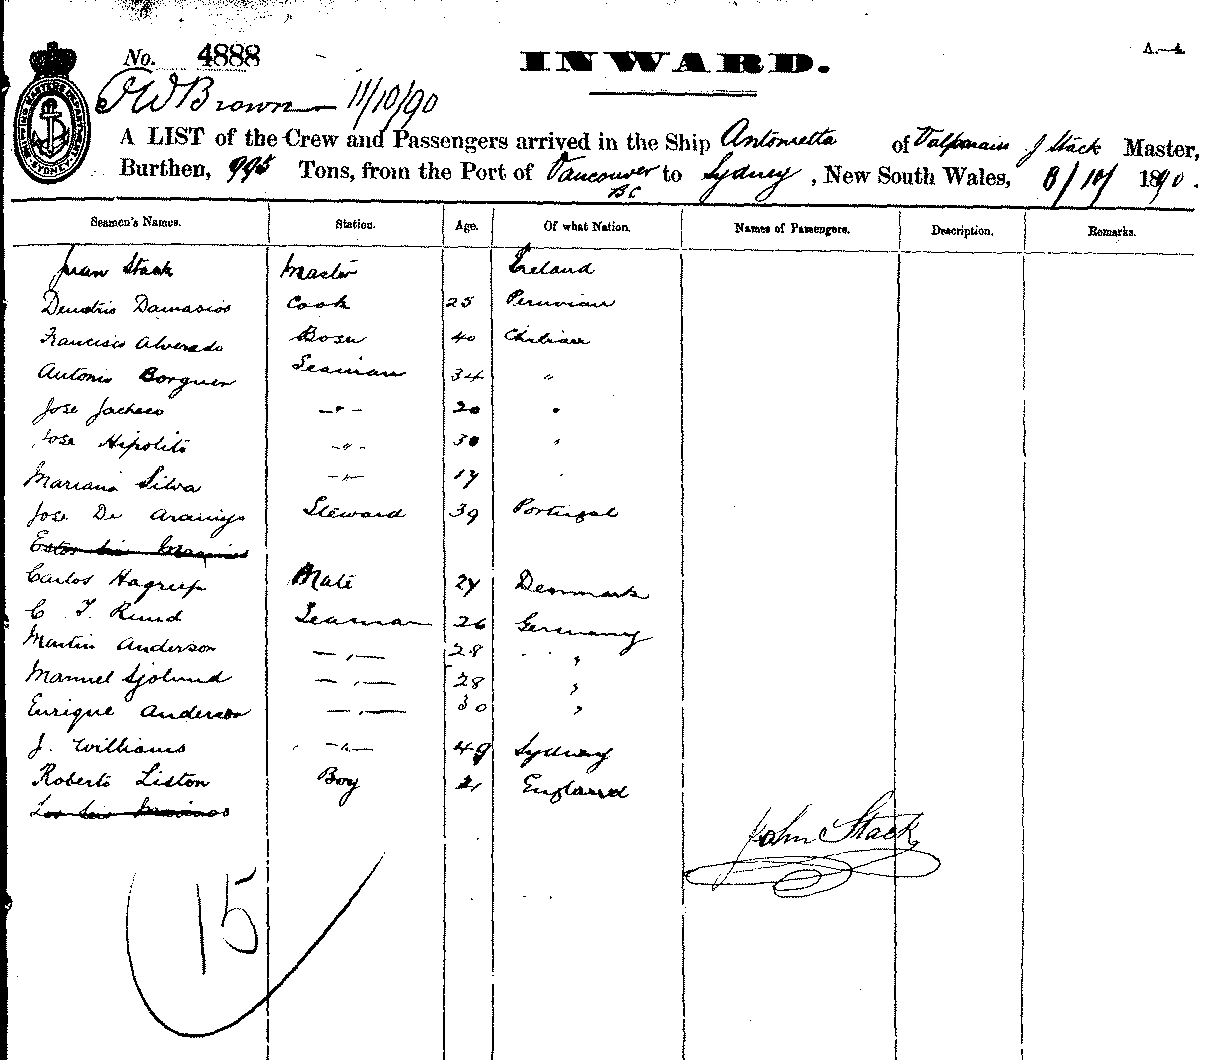 No. 4888
INWARD.
A.—4.
SHIPPING MASTERS DEPARTMENT SYDNEY
J W Brown 11/10/90
A LIST of the Crew and Passengers arrived in the Ship Antonietta of Valparaiso J Stack Master,
Burthen, 995 Tons, from the Port of Vancouver BC to Sydney, New South Wales, 8/10/ 1890.
Seamen's Names. Station. Age. Of what Nation. Names of Passengers. Description. Remarks.
Juan Stack Master Ireland
Demetrio Damasios Cook 25 Peruvian
Francisco Alverado Bosn 40 Chilian
Antonio Seaman 34 "
Jose Jacheco -"- 20 "
Jose Hipolito -"- 30 "
Mariano Silva -"- 19 "
Jose De Araujo Steward 39 Portugal
Carlos Hagrup Mate 27 Denmark
C F Rund Seaman 26 Germany
Martin Anderson -"- 28 "
Manuel Sjolund -"- 28 "
Enrique Anderson -"- 30 "
J. Williams -"- 49 Sydney
Roberto Liston Boy 21 England
John Stack
15